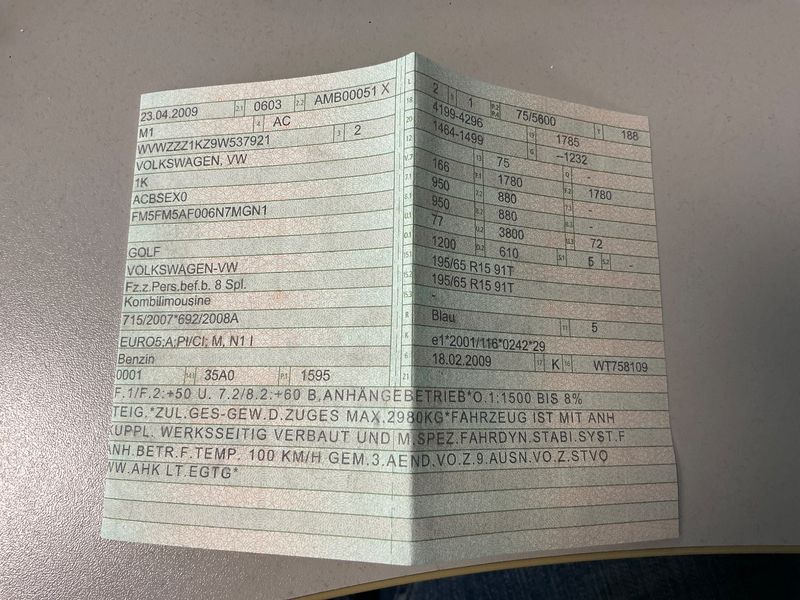 23.04.2009 2.1 0603 2.2 AMB00051 X
M1 4 AC
WVWZZZ1KZ9W537921 3 2
VOLKSWAGEN, VW
1K
ACBSEX0
FM5FM5AF006N7MGN1
GOLF
VOLKSWAGEN-VW
Fz.z.Pers.bef.b. 8 Spl.
Kombilimousine
715/2007*692/2008A
EURO5;A;PI/CI; M, N1 I
Benzin
0001 14.1 35A0 P.1 1595
L 2 9 1 P.2 P.4 75/5600 T 188
18 4199-4296 19 1785
20 1464-1499 G –1232
12 13 75 Q -
V.7 166 F.1 1780 F.2 1780
7.1 950 7.2 880 7.3 -
8.1 950 8.2 880 8.3 -
U.1 77 U.2 3800 U.3 72
O.1 1200 O.2 610 S.1 5 S.2 -
15.1 195/65 R15 91T
15.2 195/65 R15 91T
15.3 -
R Blau 11 5
K e1*2001/116*0242*29
6 18.02.2009 17 K 16 WT758109
21
F.1/F.2:+50 U. 7.2/8.2:+60 B.ANHÄNGEBETRIEB*O.1:1500 BIS 8%
TEIG.*ZUL.GES-GEW.D.ZUGES MAX.2980KG*FAHRZEUG IST MIT ANH
KUPPL. WERKSSEITIG VERBAUT UND M.SPEZ.FAHRDYN.STABI.SYST.F
ANH.BETR.F.TEMP. 100 KM/H GEM.3.AEND.VO.Z.9.AUSN.VO.Z.STVO
WW.AHK LT.EGTG*